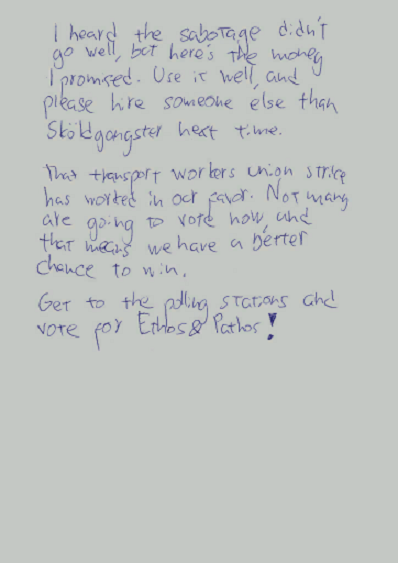 I heard the sabotage didn't
go well, but here's the money
I promised. Use it well, and
please hire someone else than
Sköldgangster next time.
That transport workers union strike
has worked in our favor. Not many
are going to vote now, and
that means we have a better
chance to win.
Get to the polling stations and
vote for Ethos & Pathos!